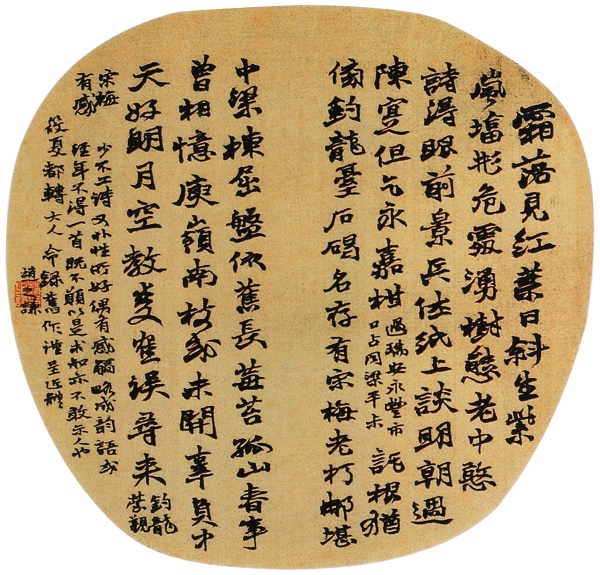 霜落見紅葉日斜生紫
嵐墖形危靈湧樹態老中憨
詩得眼前景兵佐紙上談明朝過
陳寔但乞永嘉柑過瑞安永豐市口占同梁平未託根猶
傍釣龍臺石碣名存有宋梅老朽那堪
中梁棟屈盤依舊長莓苔孤山春事
曾相憶庾嶺南枝或未開辜負中
天好明月空教雙雀誤尋來釣龍臺觀
宋梅有感少不工詩又非性所好偶有感觸略成韵語或
經年不得一首既不願以是求知亦不敢示人也
筱夏都轉大人命錄舊作謹呈近體
趙之謙